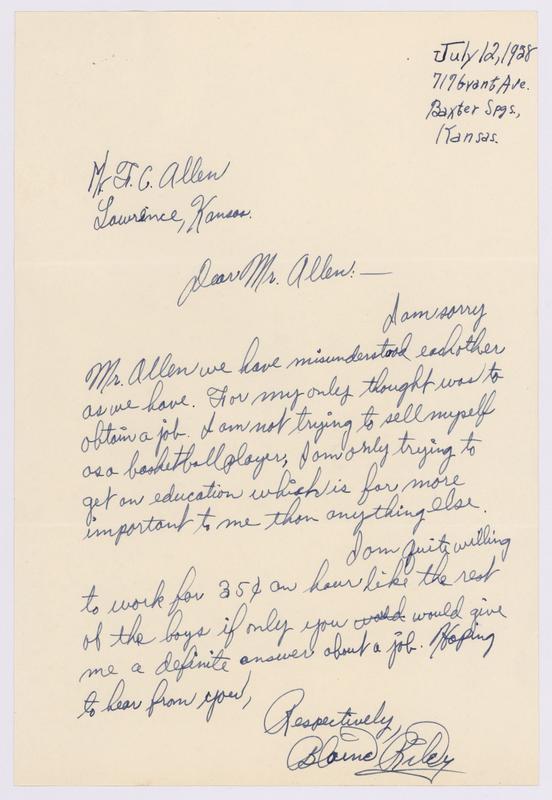 July 12, 1938
717 Grant Ave.
Baxter Spgs.,
Kansas.
Mr. F. C. Allen
Lawrence, Kansas.
Dear Mr. Allen: —
I am sorry
Mr. Allen we have misunderstood eachother
as we have. For my only thought was to
obtain a job. I am not trying to sell myself
as a basketball player; I am only trying to
get an education which is far more
important to me than anything else.
I am quite willing
to work for 35¢ an hour like the rest
of the boys if only you would give
me a definite answer about a job. Hoping
to hear from you,
Respectively,
Blaine Riley